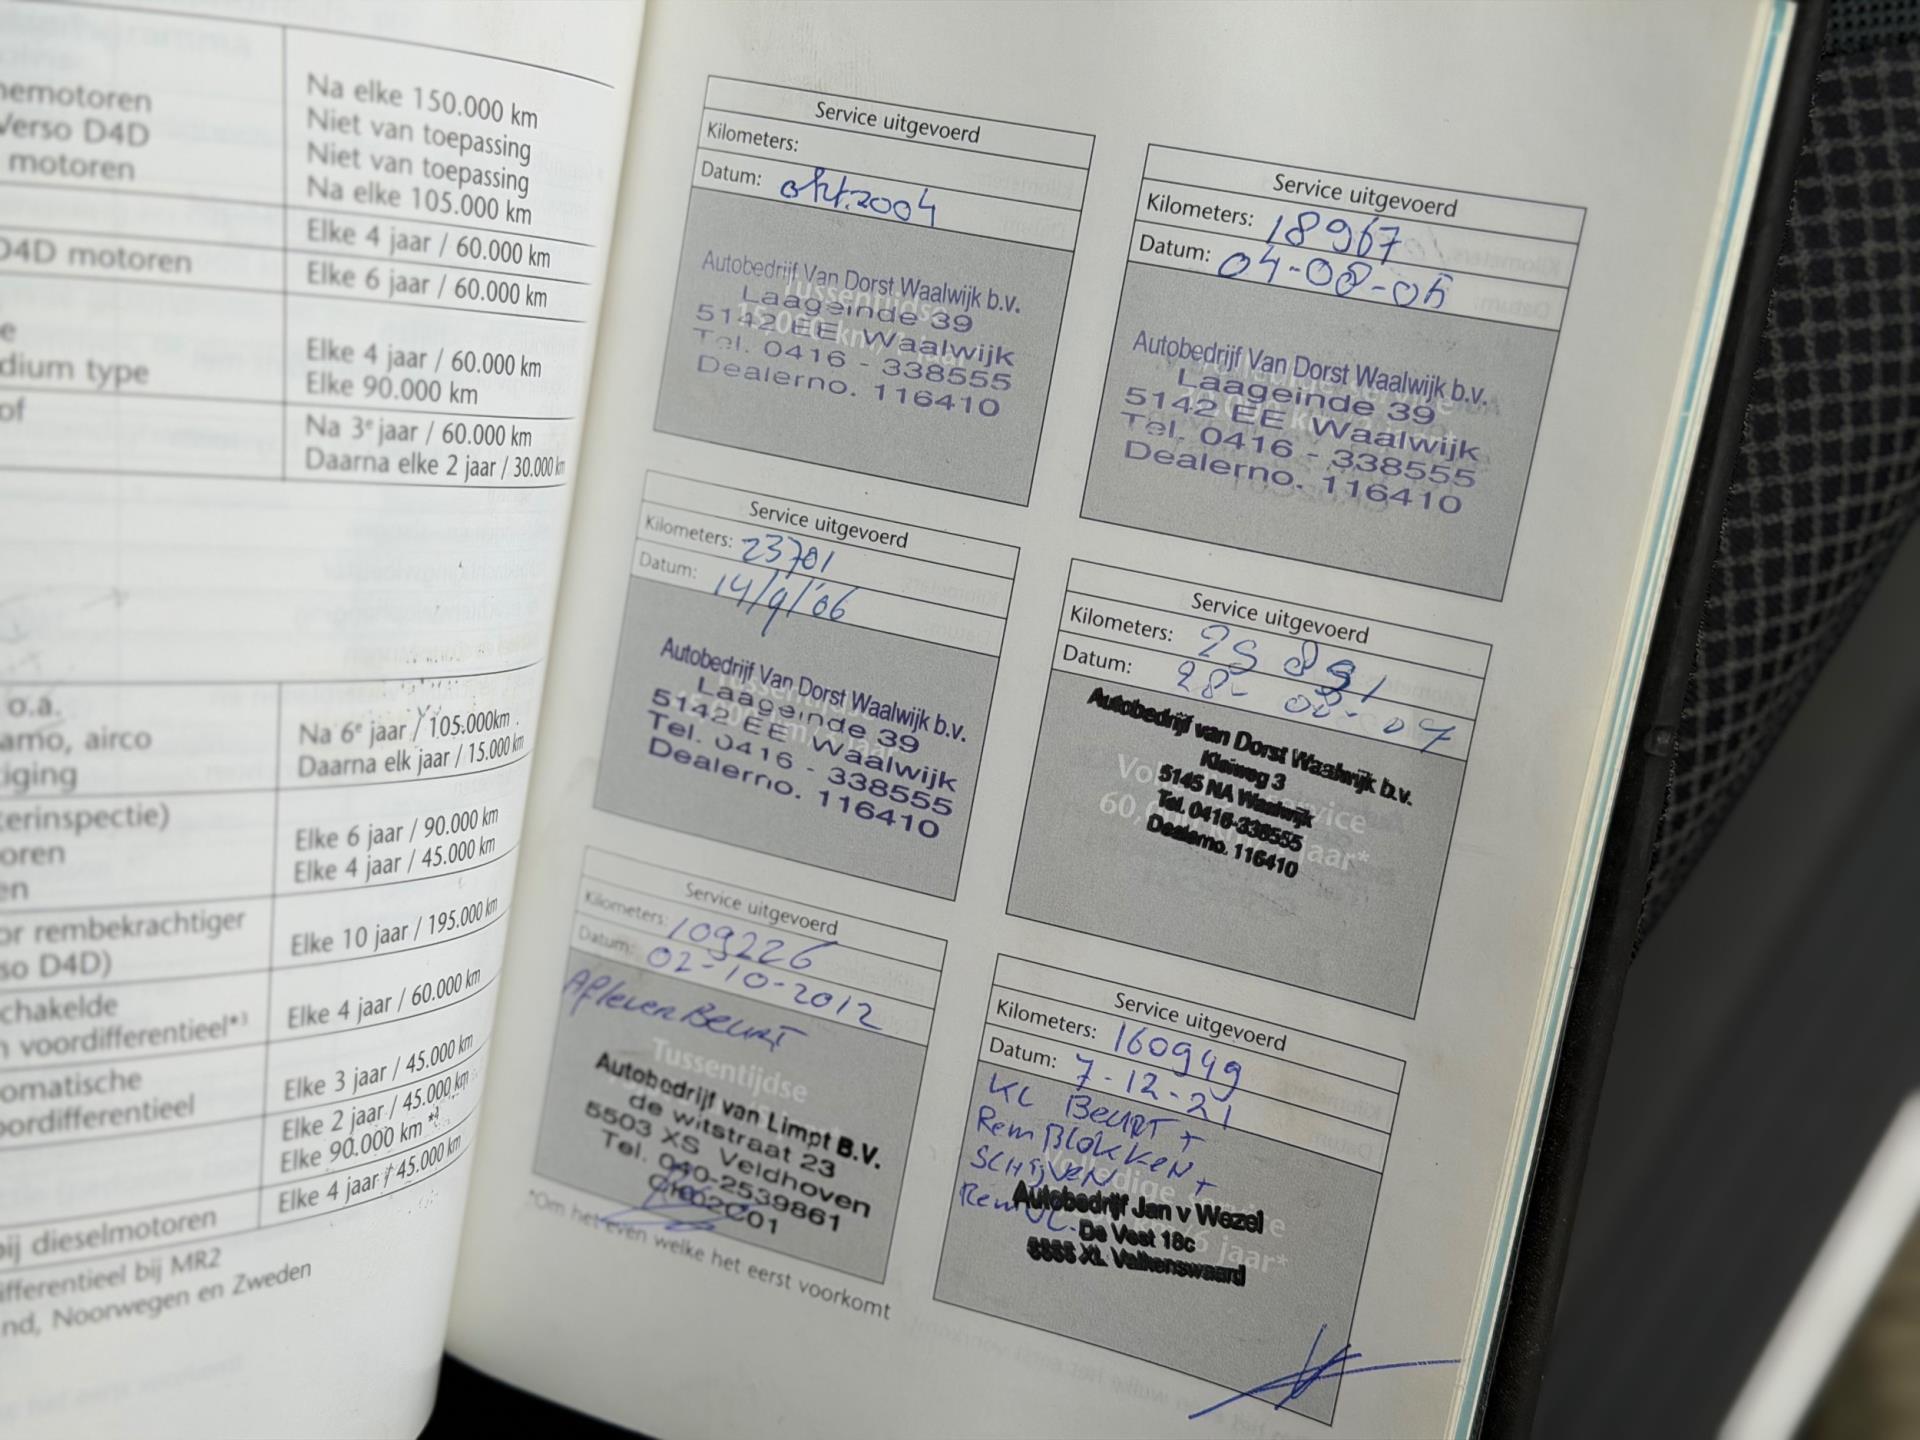 nemotoren
Verso D4D
motoren
Na elke 150.000 km
Niet van toepassing
Niet van toepassing
Na elke 105.000 km
Elke 4 jaar / 60.000 km
D4D motoren
Elke 6 jaar / 60.000 km
e
dium type
Elke 4 jaar / 60.000 km
Elke 90.000 km
of
Na 3e jaar / 60.000 km
Daarna elke 2 jaar / 30.000 km
o.a.
amo, airco
iging
Na 6e jaar / 105.000km
Daarna elk jaar / 15.000 km
erinspectie)
oren
en
Elke 6 jaar / 90.000 km
Elke 4 jaar / 45.000 km
or rembekrachtiger
so D4D)
Elke 10 jaar / 195.000 km
chakelde
n voordifferentieel*3
Elke 4 jaar / 60.000 km
omatische
oordifferentieel
Elke 3 jaar / 45.000 km
Elke 2 jaar / 45.000 km
Elke 90.000 km *4
Elke 4 jaar / 45.000 km
bij dieselmotoren
ifferentieel bij MR2
nd, Noorwegen en Zweden
Service uitgevoerd
Kilometers:
Datum: okt.2004
Tussentijdse
15,000 km/1 jaar*
Autobedrijf Van Dorst Waalwijk b.v.
Laageinde 39
5142 EE Waalwijk
Tel. 0416 - 338555
Dealerno. 116410
Service uitgevoerd
Kilometers: 18967
Datum: 04-08-05
Autobedrijf Van Dorst Waalwijk b.v.
Laageinde 39
5142 EE Waalwijk
Tel. 0416 - 338555
Dealerno. 116410
Service uitgevoerd
Kilometers: 23701
Datum: 14/9/'06
Tussentijdse
Autobedrijf Van Dorst Waalwijk b.v.
Laageinde 39
5142 EE Waalwijk
Tel. 0416 - 338555
Dealerno. 116410
Service uitgevoerd
Kilometers: 25 891
Datum: 28-08-07
Autobedrijf van Dorst Waalwijk b.v.
Kleiweg 3
5145 NA Waalwijk
Tel. 0416-338555
Dealerno. 116410
Service uitgevoerd
Kilometers: 109226
Datum: 02-10-2012
Aflever Beurt
Tussentijdse
Autobedrijf van Limpt B.V.
de witstraat 23
5503 XS Veldhoven
Tel. 040-2539861
Service uitgevoerd
Kilometers: 160949
Datum: 7-12-21
KL Beurt +
RemBlokken +
Schijven +
Volledige service
Autobedrijf Jan v Wezel
De Vest 18c
5555 XL Valkenswaard
*Om het even welke het eerst voorkomt